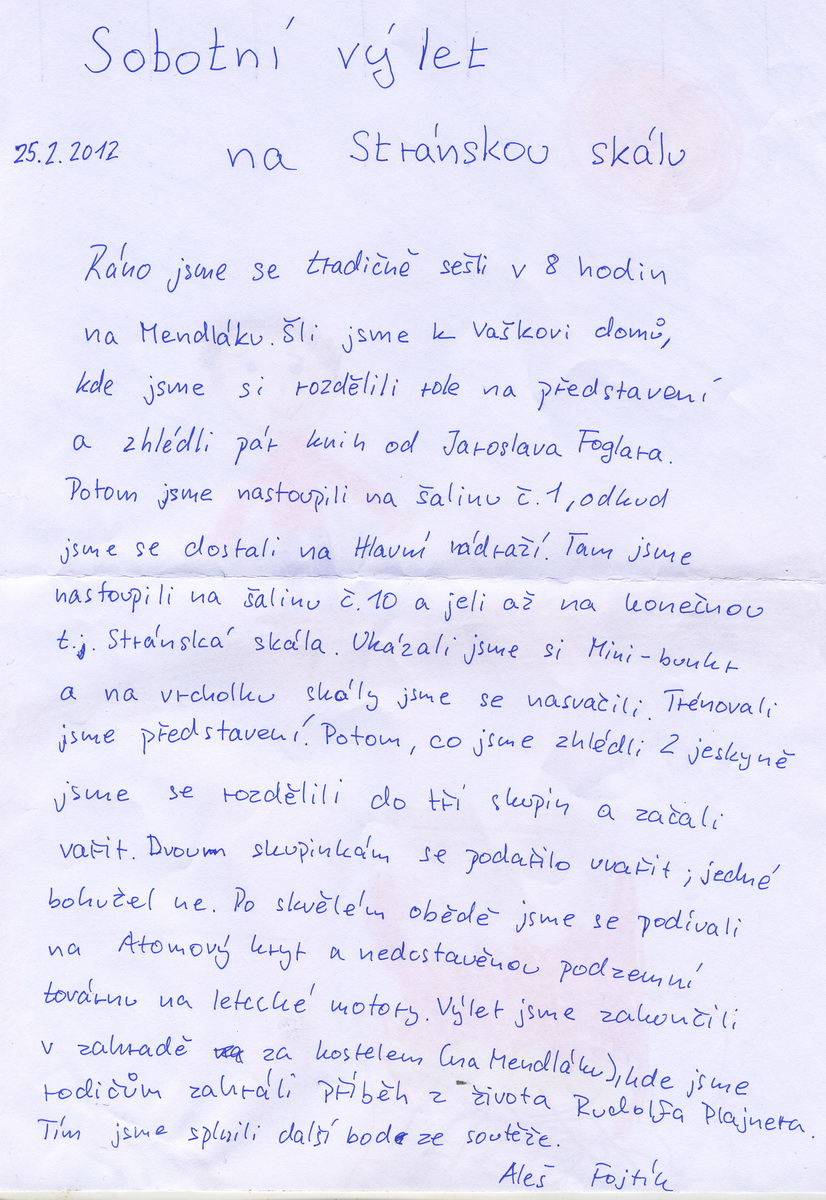 Sobotní výlet
25.2.2012 na Stránskou skálu
Ráno jsme se tradičně sešli v 8 hodin
na Mendláku. Šli jsme k Vaškovi domů,
kde jsme si rozdělili role na představení
a zhlédli pár knih od Jaroslava Foglara.
Potom jsme nastoupili na šalinu č.1, odkud
jsme se dostali na Hlavní nádraží. Tam jsme
nastoupili na šalinu č.10 a jeli až na konečnou
t.j. Stránská skála. Ukázali jsme si Mini-bunkr
a na vrcholku skály jsme se nasvačili. Trénovali
jsme představení. Potom, co jsme zhlédli 2 jeskyně
jsme se rozdělili do tří skupin a začali
vařit. Dvoum skupinkám se podařilo uvařit; jedné
bohužel ne. Po skvělém obědě jsme se podívali
na Atomový kryt a nedostavěnou podzemní
továrnu na letecké motory. Výlet jsme zakončili
v zahradě za kostelem (na Mendláku), kde jsme
rodičům zahráli příběh z života Rudolfa Plajnera.
Tím jsme splnili další bod ze soutěže.
Aleš Fojtík